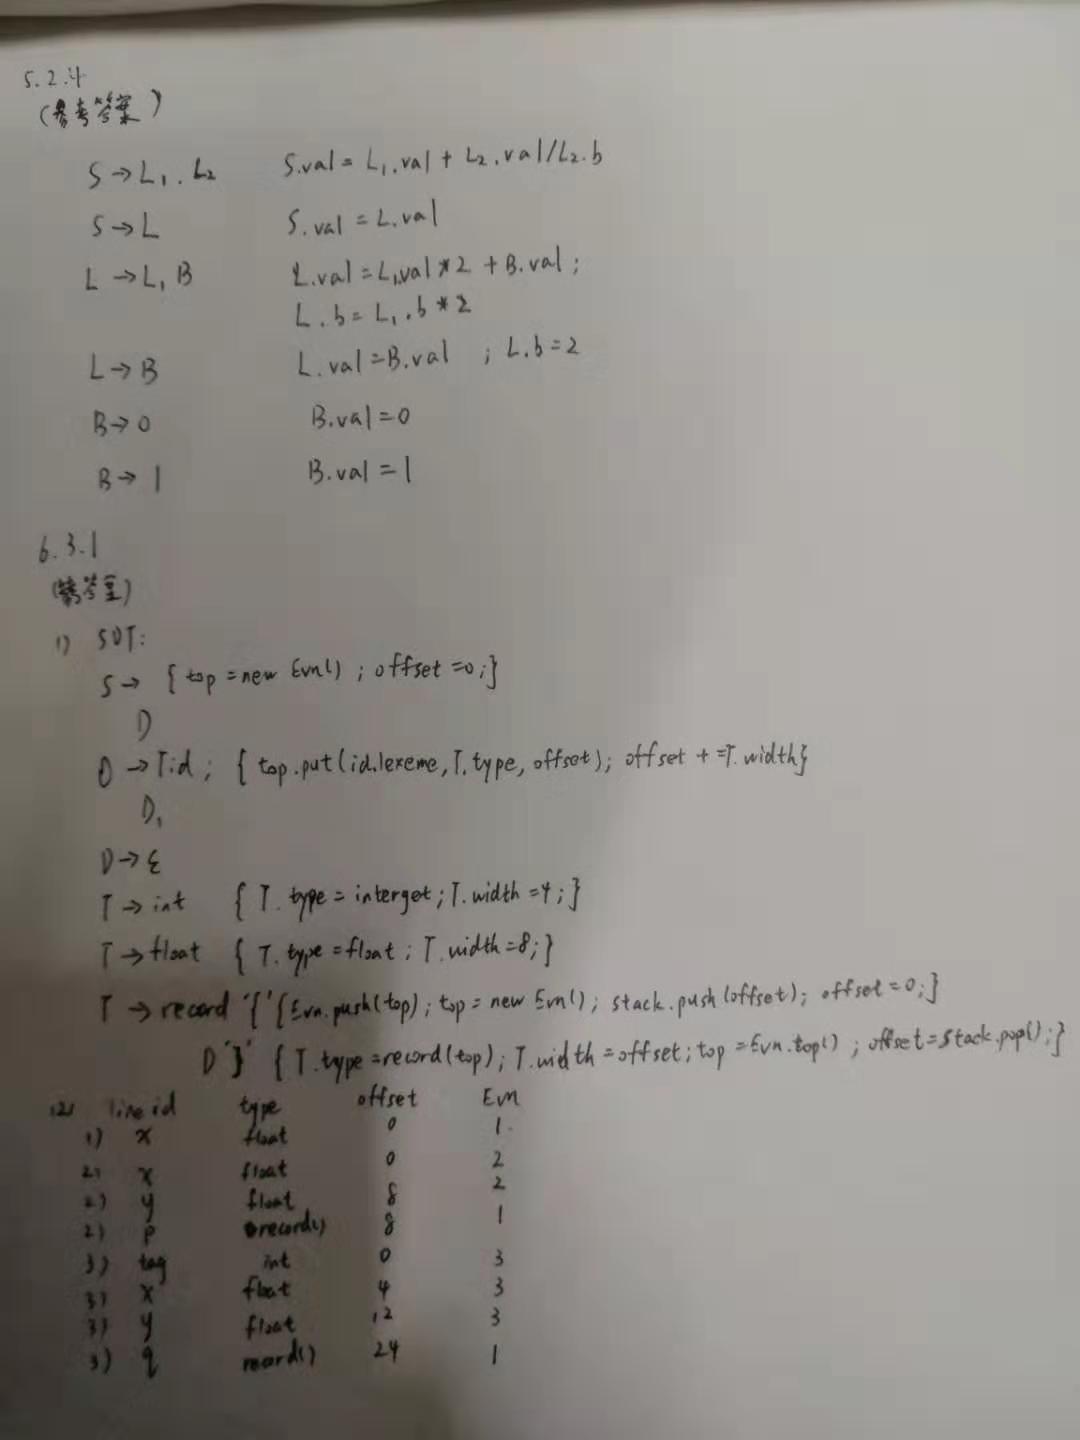 5.2.4
(参考答案)
S→L₁.L₂ S.val=L₁.val+L₂.val/L₂.b
S→L S.val=L.val
L→L₁B L.val=L₁.val*2+B.val;
L.b=L₁.b*2
L→B L.val=B.val ; L.b=2
B→0 B.val=0
B→1 B.val=1
6.3.1
(参考答案)
1) SDT:
S→ {top=new Evn(); offset=0;}
D
D→Tid; {top.put(id.lexeme,T.type,offset); offset+=T.width}
D₁
D→ε
T→int {T.type=interget;T.width=4;}
T→float {T.type=float;T.width=8;}
T→record '{'{Evn.push(top);top=new Evn();stack.push(offset);offset=0;}
D'}' {T.type=record(top);T.width=offset;top=Evn.top();offset=stack.pop();}
(2) line id type offset Evn
1) x float 0 1
2) x float 0 2
2) y float 8 2
2) p record() 8 1
3) tag int 0 3
3) x float 4 3
3) y float 12 3
3) q record() 24 1